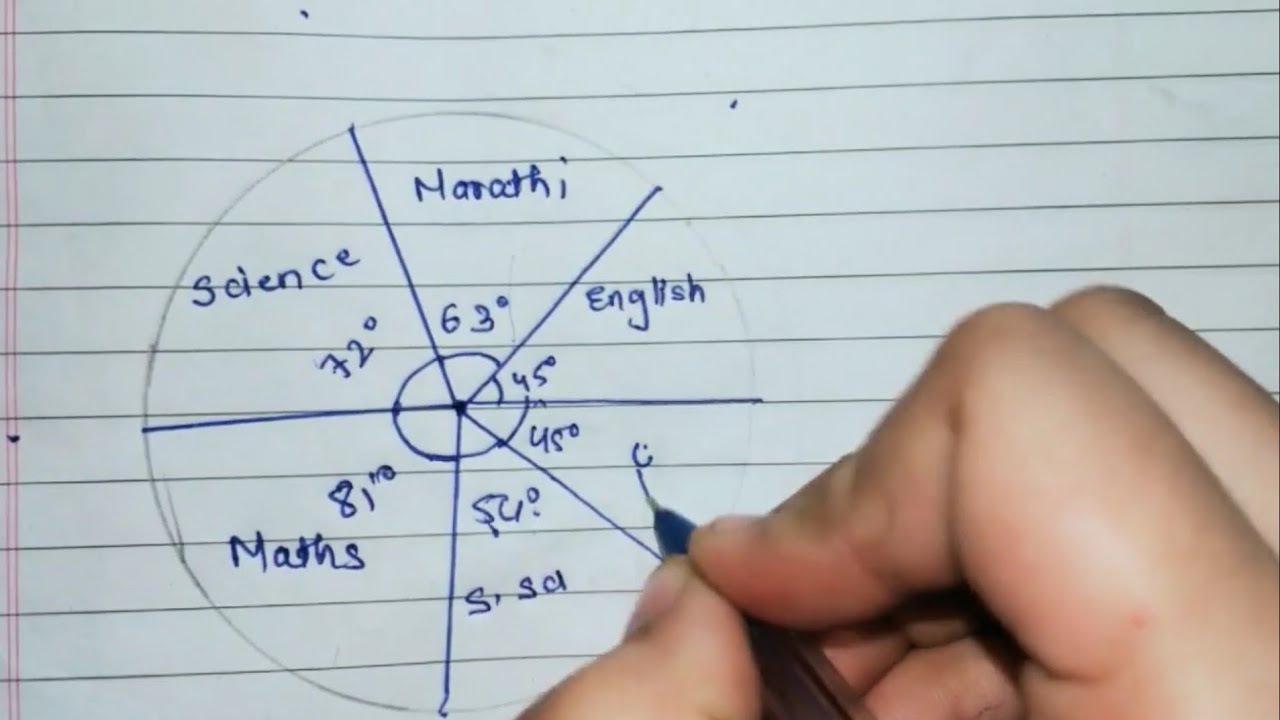 Marathi
Science
English
63°
72°
45°
45°
81°
54°
Maths
S. sci